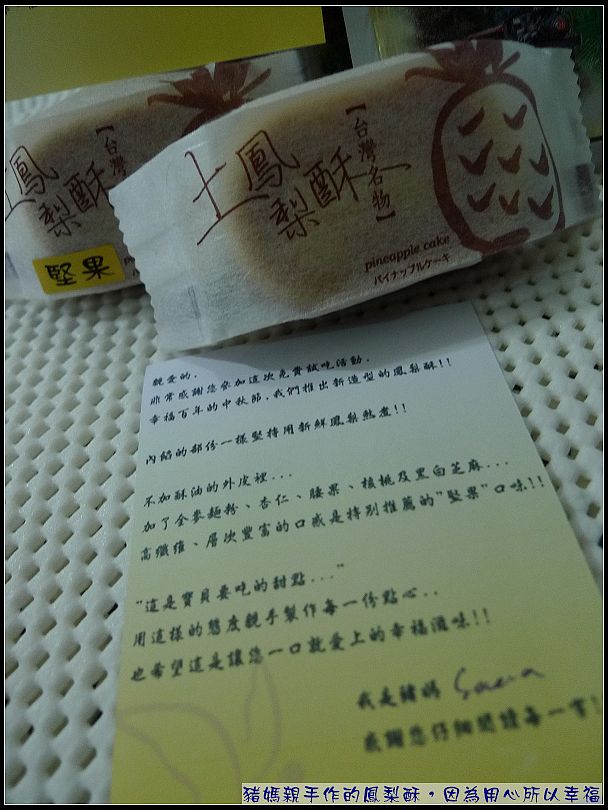 土鳳梨酥
【台灣名物】
pineapple cake
パイナップルケーキ
土鳳梨酥
【台灣
堅果
親愛的,
非常感謝您參加這次免費試吃活動,
幸福百年的中秋節,我們推出新造型的鳳梨酥!!
內餡的部份一樣堅持用新鮮鳳梨熬煮!!
不加酥油的外皮裡...
加了全麥麵粉、杏仁、腰果、核桃及黑白芝麻...
高纖維、層次豐富的口感是特別推薦的"堅果"口味!!
"這是寶貝要吃的甜點..."
用這樣的態度親手製作每一份點心..
也希望這是讓您一口就愛上的幸福滋味!!
我是豬媽
感謝您仔細閱讀每一字!
豬媽親手作的鳳梨酥。因為用心所以幸福